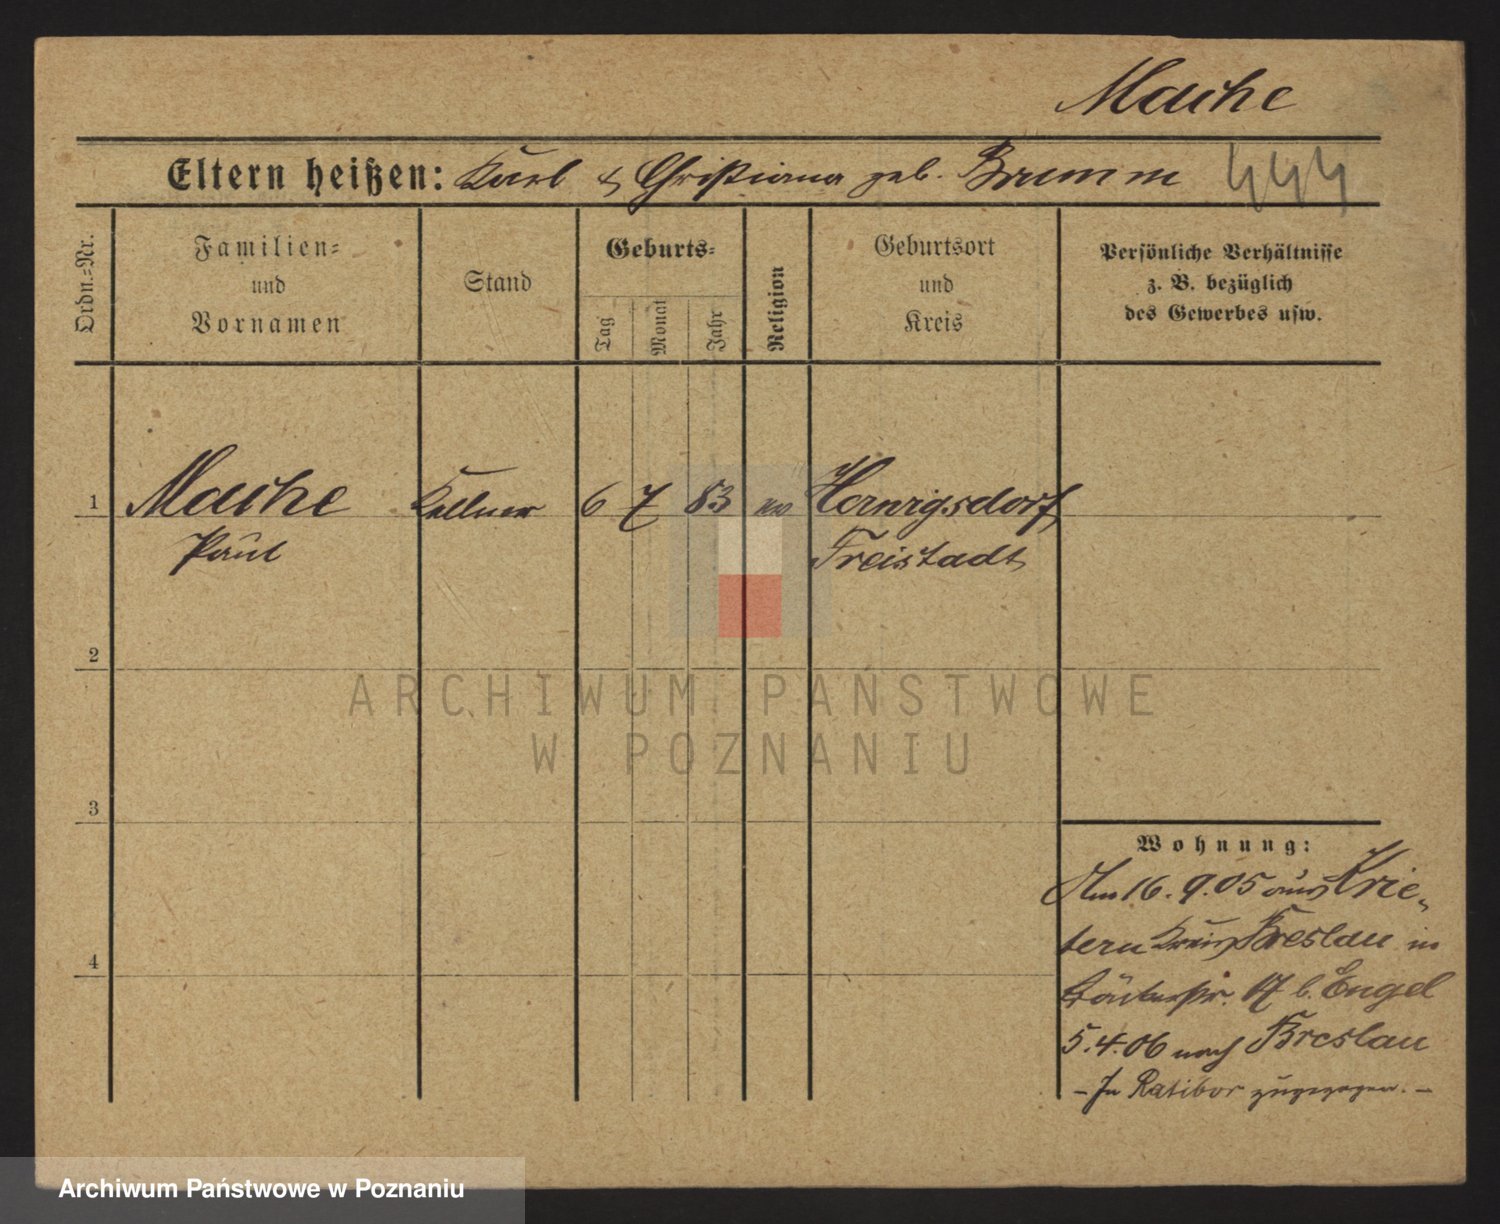 Mache
Eltern heißen: Karl & Christiana geb. Brumm
444
Ordn.=Nr.
Familien=
und
Vornamen
Stand
Geburts=
Tag
Monat
Jahr
Religion
Geburtsort
und
Kreis
Persönliche Verhältnisse
z. B. bezüglich
des Gewerbes usw.
1 Mache Kellner 6 7 83 ev Hornigsdorf
Paul Freistadt
2
3
4
Wohnung:
Am 16.9.05 aus Krie-
tern Kreis Breslau in
17 b. Engel
5.4.06 nach Breslau
- In Ratibor zugezogen. -
ARCHIWUM PAŃSTWOWE
W POZNANIU
Archiwum Państwowe w Poznaniu